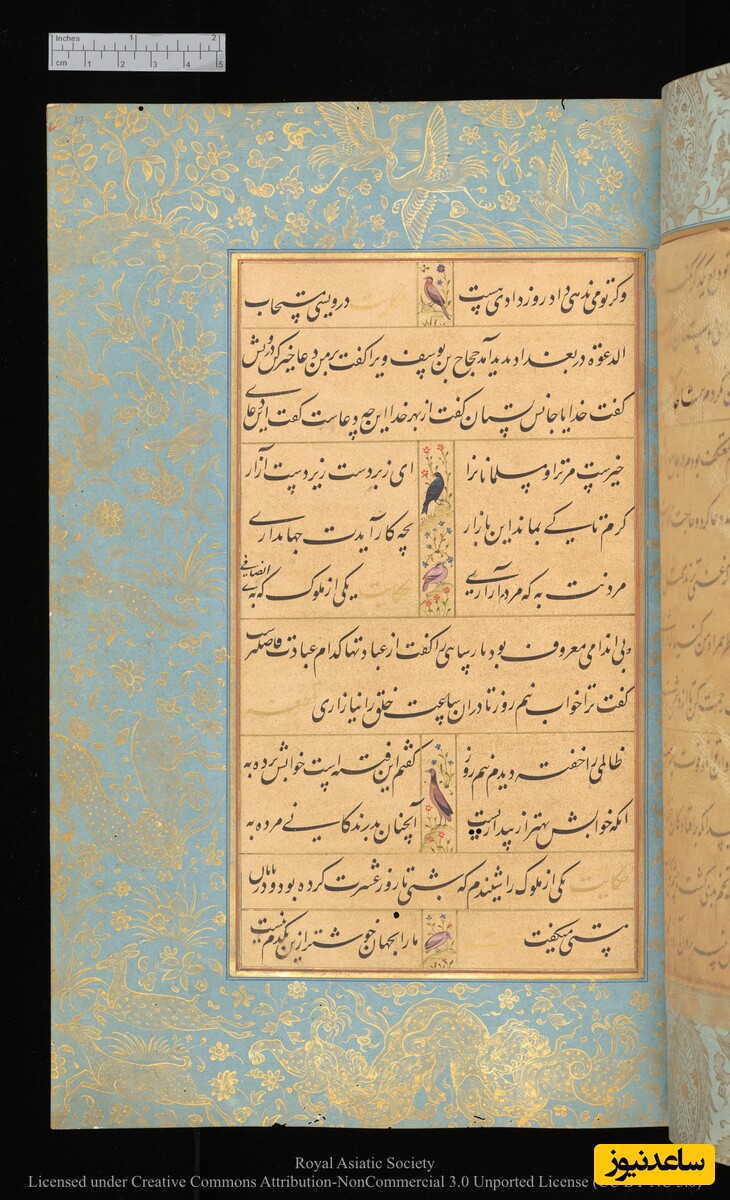 Inches 1 2
cm 1 2 3 4 5
وگر تو می ندهی داد روز دادی هست
حکایت درویشی مستجاب
الدعوه در بغداد پدید آمد حجاج بن یوسف ویرا گفت بر من دعا خیر کن درویش
گفت خدایا جانش بستان گفت از بهر خدا این چه دعاست گفت این دعای
خیرست مر ترا و مسلمانانرا ای زبردست زیردست آزار
گرم تا کی بماند این بازار بچه کار آیدت جهانداری
مردنت به که مردم آزاری حکایت یکی از ملوک که به بی انصافی
و بی اندامی معروف بود پارسایی را گفت از عبادتها کدام عبادت فاضلترست
گفت ترا خواب نیم روز تا در آن ساعت خلق را نیازاری قطعه
ظالمی را خفته دیدم نیم روز گفتم این فتنه است خوابش برده به
آنکه خوابش بهتر از بیداریست آنچنان بد زندگانی مرده به
حکایت یکی از ملوک را شنیدم که شبی تا روز عشرت کرده بود و در پایان
مستی میگفت ما را بجهان خوشتر ازین یکدم نیست
Royal Asiatic Society
Licensed under Creative Commons Attribution-NonCommercial 3.0 Unported License
ساعدنیوز